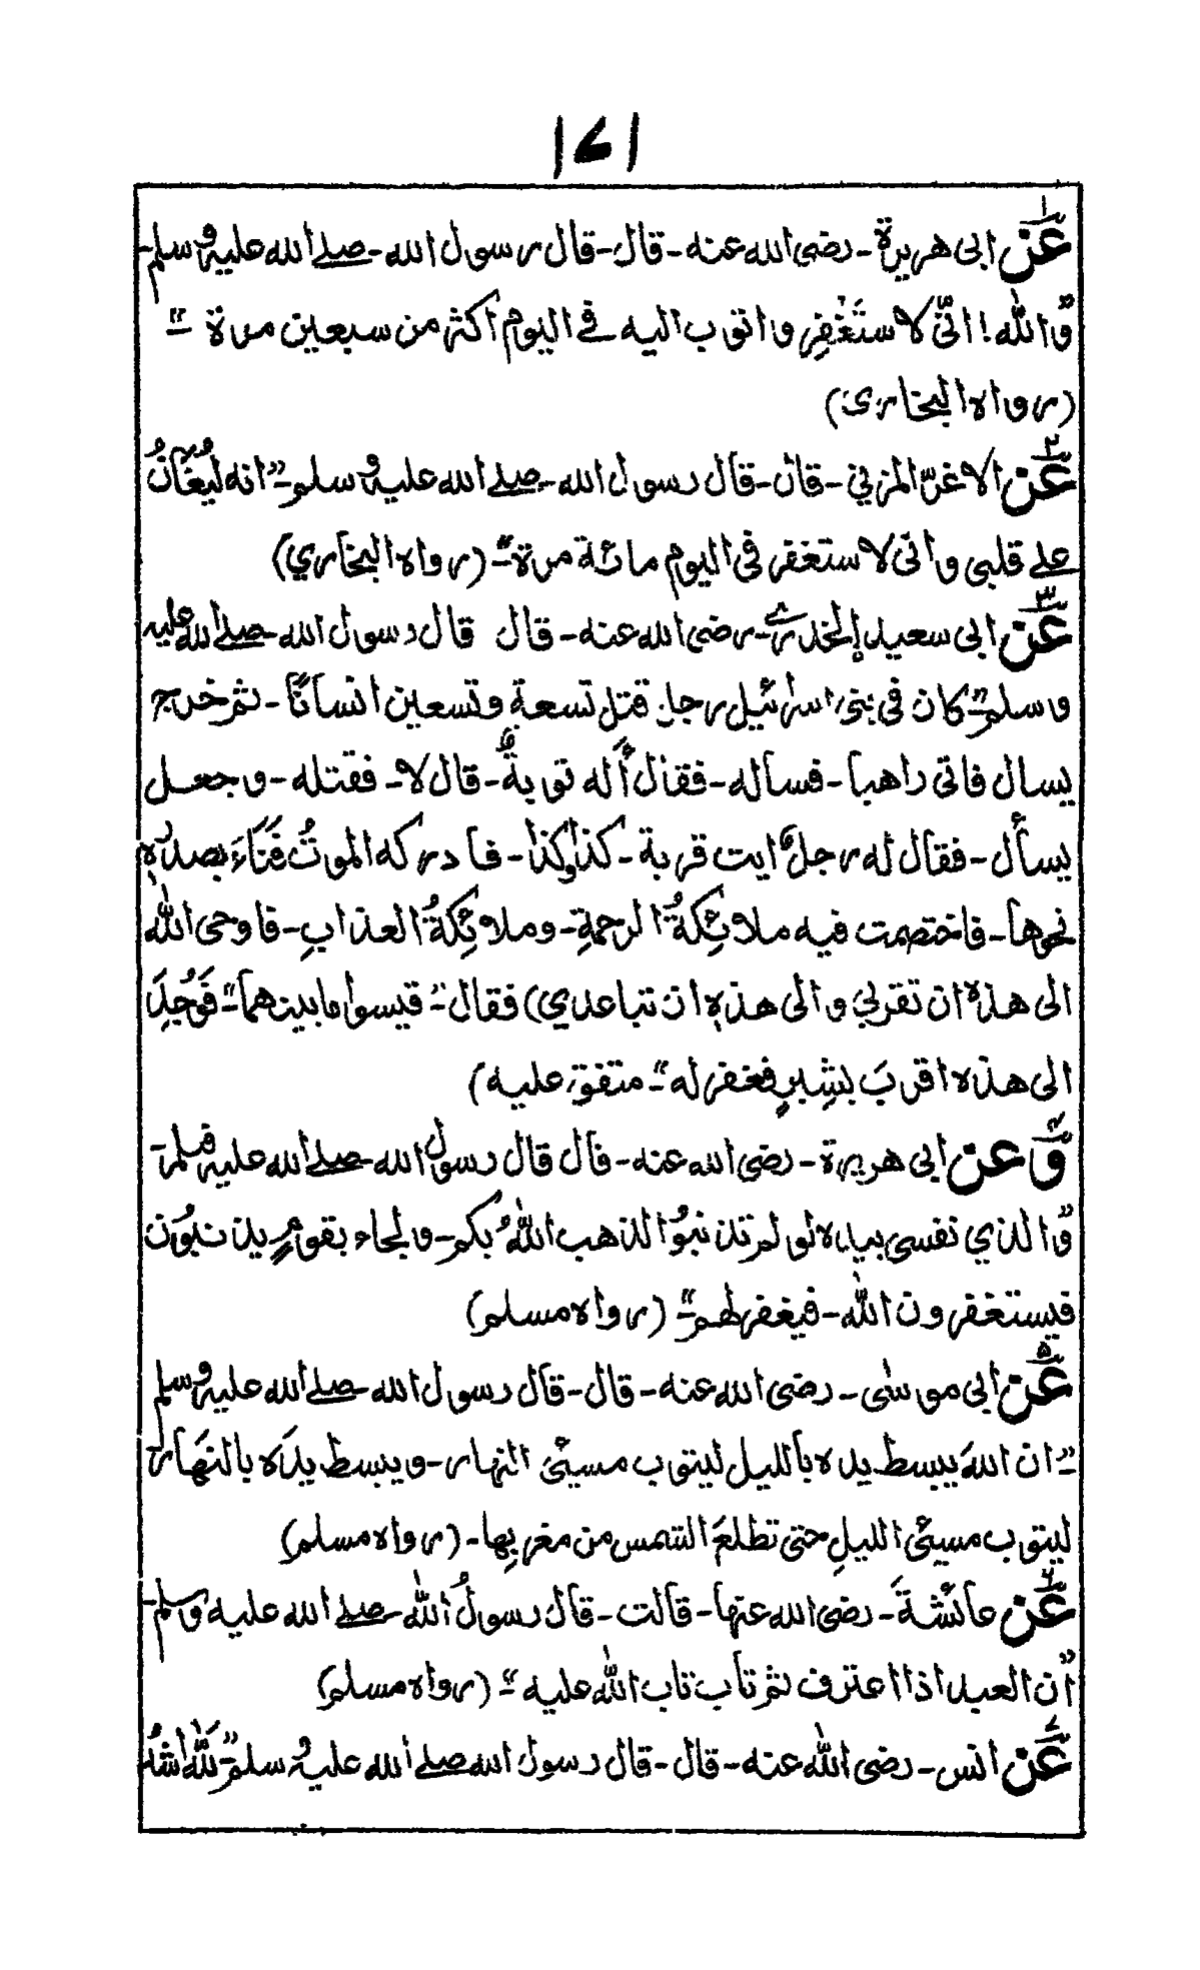 ۱۷۱
۱
عَنْ ابی هریرة - رضی الله عنه - قال - قال رسول الله - صلے الله علیہ وسلم -
"وَاللّٰه! انّی لاستَغْفِر واتوب الیه فے الیوم اکثر من سبعین مرة -"
(رواه البخاری)
۲
عَنْ الاغرّ المزنیّ - قال - قال رسول الله - صلے الله علیہ وسلم - "انه لیُغَانُ
علے قلبی وانّی لاستغفر فی الیوم مائة مرة -" (رواه البخاري)
۳
عَنْ ابی سعید الخدریؓ - رضی الله عنه - قال قال رسول الله - صلے الله علیه
وسلم - "کان فی بنی اسرائیل رجل قتل تسعة وتسعین انسانًا - ثم خرج
یسال فاتی راهبا - فساله - فقال أَله توبةٌ - قال لا - فقتله - وجعل
یسأل - فقال له رجلٌ ایت قریة - کذا وکذا - فادرکه الموتُ فَنَاءَ بصدرِه
نحوها - فاختصمت فیه ملائِکةُ الرحمةِ - وملائِکةُ العذابِ - فاوحی اللّٰه
الی هذه ان تقربی والی هذهِ ان تباعدي) فقال - "قیسوا ما بینهما -" فَوُجِدَ
الی هذه اقربَ بشِبرٍ فغفر له -" متفق علیه)
۴
وَعن ابی هریرة - رضی الله عنه - قال قال رسول الله - صلے الله علیہ وسلم -
"وَالذي نفسی بیده لو لم تذنبوُ الذهب اللّٰهُ بکم - ولجاء بقومٍ یذنبوُن
فیستغفرون اللّٰه - فیغفر لهم -" (رواه مسلم)
۵
عَنْ ابی موسٰی - رضی الله عنه - قال - قال رسول الله - صلے الله علیہ وسلم
- "ان اللهَ یبسط یده باللیل لیتوب مسیئی النهار - ویبسط یدَه بالنَهَار
لیتوب مسیئی اللیلِ حتی تطلعَ الشمس من مغربِها - (رواه مسلم)
۶
عَنْ عائشةَ - رضی الله عنها - قالت - قال رسولُ اللّٰه - صلے الله علیه وسلم -
"اِن العبد اذا اعترف ثم تاب تاب اللّٰه علیه -" (رواه مسلم)
۷
عَنْ انس - رضی اللّٰه عنه - قال - قال رسول الله صلے الله علیہ وسلم - "للّٰه اشدُ